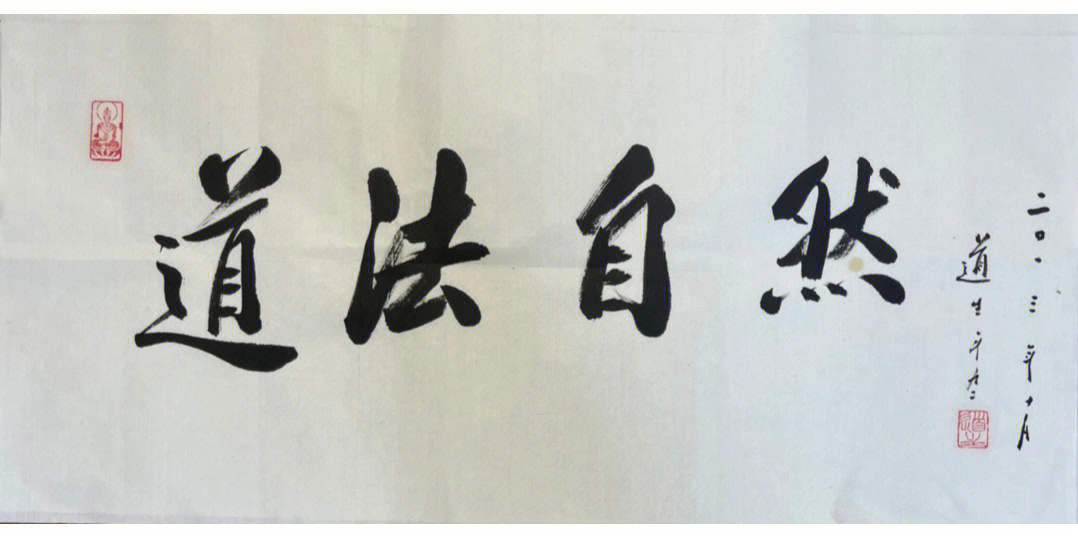 道法自然
二〇一三年十月
道生
道生